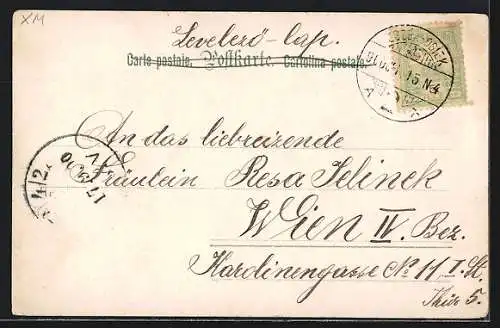 XM
Levelező-lap.
Carte postale. Postkarte. Cartolina postale.
An das liebreizende
Fräulein Resa Jelinek
Wien IV. Bez.
No 11, I. St.
Thür 5.